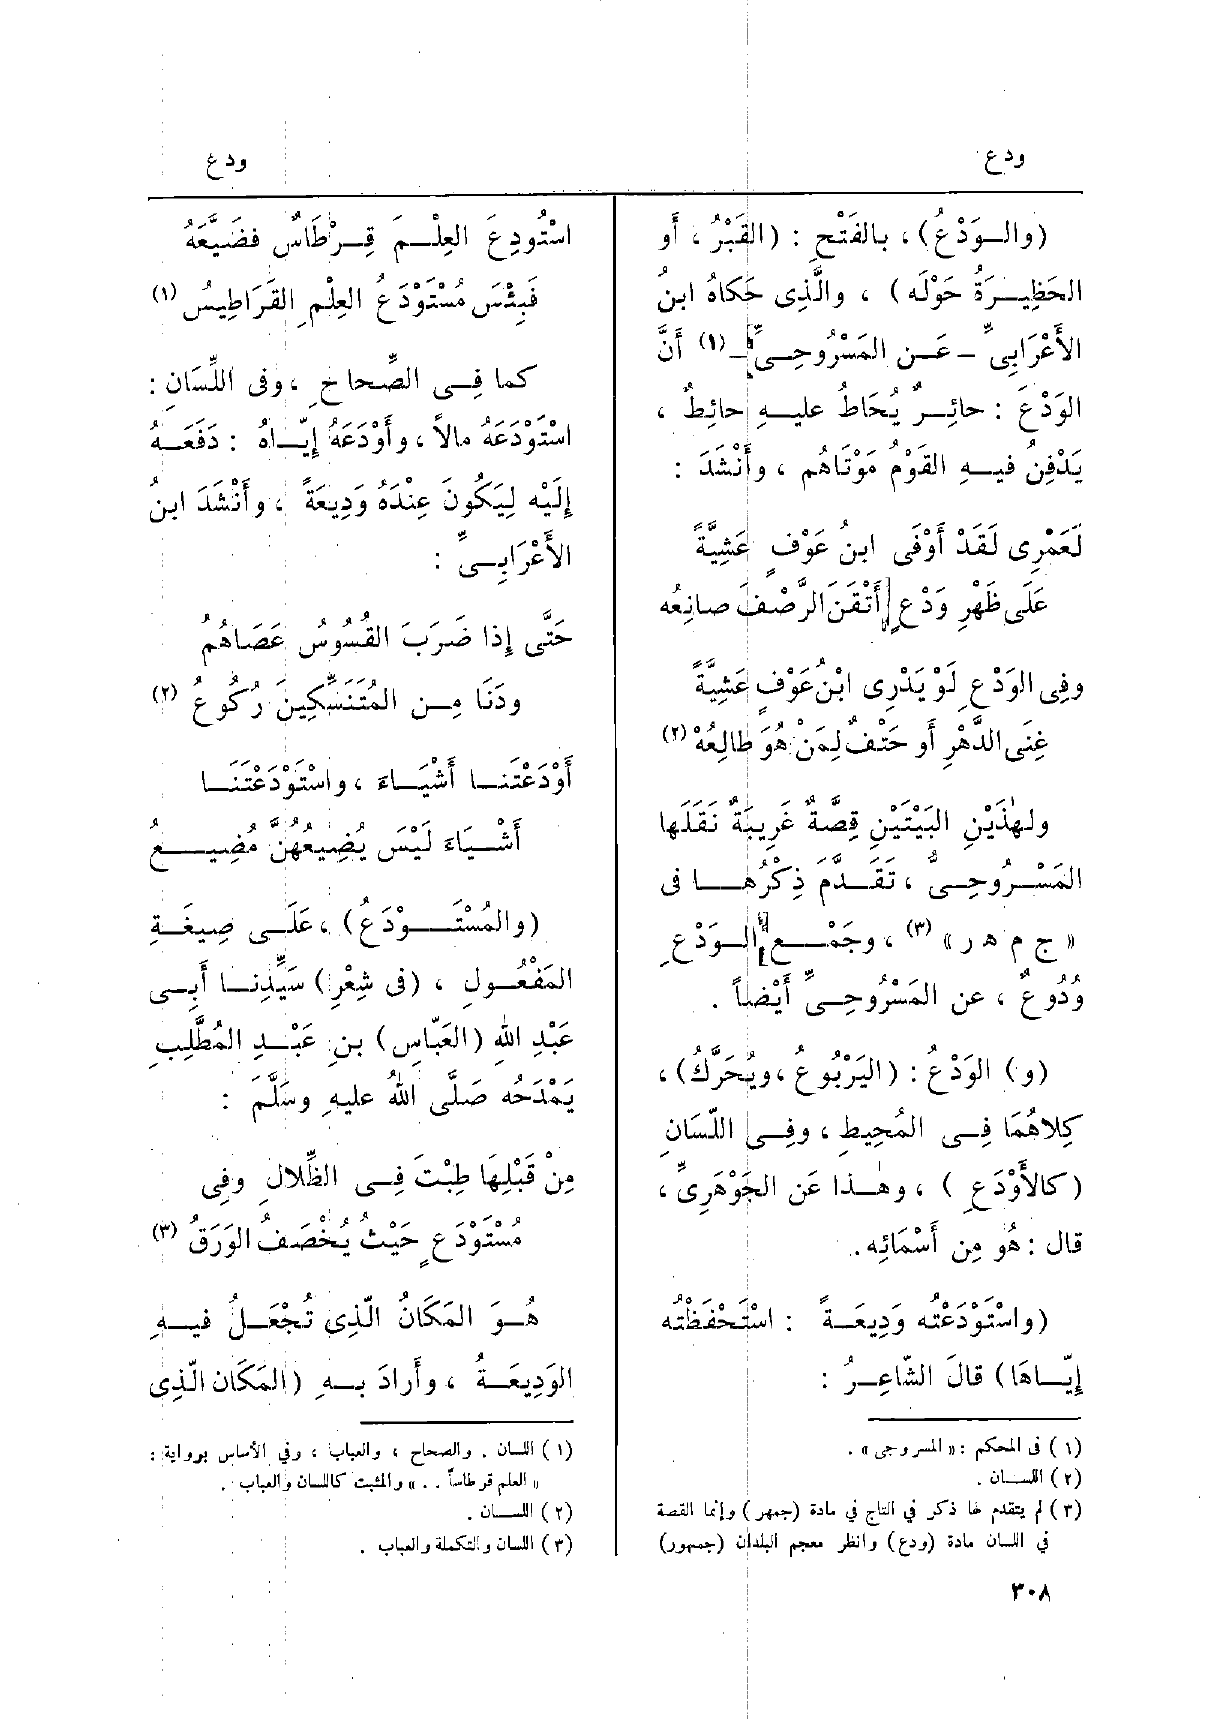 ودع
ودع
(والوَدْعُ)، بالفَتْحِ : (القَبْرُ ، أَو
الحَظِيرَةُ حَوْلَه) ، والَّذِى حَكاهُ ابنُ
الأَعْرَابِىِّ – عَن المَسْرُوحِىِّ – (١) أَنَّ
الوَدْعَ : حائِرٌ يُحَاطُ عليهِ حائِطٌ ،
يَدْفِنُ فيهِ القَوْمُ مَوْتَاهُم ، وأَنْشَدَ :
لَعَمْرِى لَقَدْ أَوْفَى ابنُ عَوْفٍ عَشِيَّةً
عَلَى ظَهْرِ وَدْعٍ أَتْقَنَ الرَّصْفَ صانِعُه
وفِى الوَدْعِ لَوْ يَدْرِى ابْنُ عَوْفٍ عَشِيَّةً
غِنَى الدَّهْرِ أَو حَتْفٌ لِمَنْ هُوَ طالِعُهْ (٢)
ولهٰذَيْنِ البَيْتَيْنِ قِصَّةٌ غَرِيبَةٌ نَقَلَها
المَسْرُوحِىُّ ، تَقَدَّمَ ذِكْرُهَا فى
« ج م هـ ر » (٣) ، وجَمْعُ الوَدْعِ
وُدُوعٌ ، عن المَسْرُوحِىِّ أَيْضاً .
(و) الوَدْعُ : (اليَرْبُوعُ ، ويُحَرَّكُ) ،
كِلاهُمَا فِى المُحِيطِ ، وفِى اللّسَانِ
(كالأَوْدَعِ ) ، وهٰذا عَن الجَوْهَرِىِّ ،
قال : هُو مِن أَسْمَائِه .
(واسْتَوْدَعْتُه وَدِيعَةً : اسْتَحْفَظْتُه
إِيَّاهَا) قالَ الشَّاعِرُ :
(١) فى المحكم : « المسروجى » .
(٢) اللسان .
(٣) لم يتقدم لها ذكر في التاج في مادة (جمهر) وإنما القصة
في اللسان مادة (ودع) وانظر معجم البلدان (جمهور)
اسْتُودِعَ العِلْمَ قِرْطَاسٌ فضَيَّعَهُ
فَبِئْسَ مُسْتَوْدَعُ العِلْمِ القَرَاطِيسُ (١)
كما فِى الصِّحاحِ ، وفى اللِّسَانِ :
اسْتَوْدَعَهُ مالاً ، وأَوْدَعَهُ إِيّاهُ : دَفَعَهُ
إِلَيْه لِيَكُونَ عِنْدَهُ وَدِيعَةً ، وأَنْشَدَ ابنُ
الأَعْرَابِىِّ :
حَتَّى إِذا ضَرَبَ القُسُوسُ عَصَاهُم
ودَنَا مِن المُتَنَسِّكِينَ رُكُوعُ (٢)
أَوْدَعْتَنَا أَشْيَاءَ ، واسْتَوْدَعْتَنَا
أَشْيَاءَ لَيْسَ يُضِيعُهُنَّ مُضِيعُ
(والمُسْتَوْدَعُ) ، عَلَى صِيغَةِ
المَفْعُولِ ، (فى شِعْرِ) سَيِّدِنا أَبِى
عَبْدِ اللهِ (العَبّاسِ) بنِ عَبْدِ المُطَّلِبِ
يَمْدَحُه صَلَّى اللهُ عليهِ وسَلَّمَ :
مِنْ قَبْلِهَا طِبْتَ فِى الظِّلالِ وفِى
مُسْتَوْدَعٍ حَيْثُ يُخْصَفُ الوَرَقُ (٣)
هُوَ المَكَانُ الَّذِى تُجْعَلُ فيهِ
الوَدِيعَةُ ، وأَرادَ بهِ (المَكَان الَّذِى
(١) اللسان . والصحاح ، والعباب ، وفي الأساس برواية :
« العلم قرطاساً . . » والمثبت كاللسان والعباب .
(٢) اللسان .
(٣) اللسان والتكملة والعباب .
٣٠٨